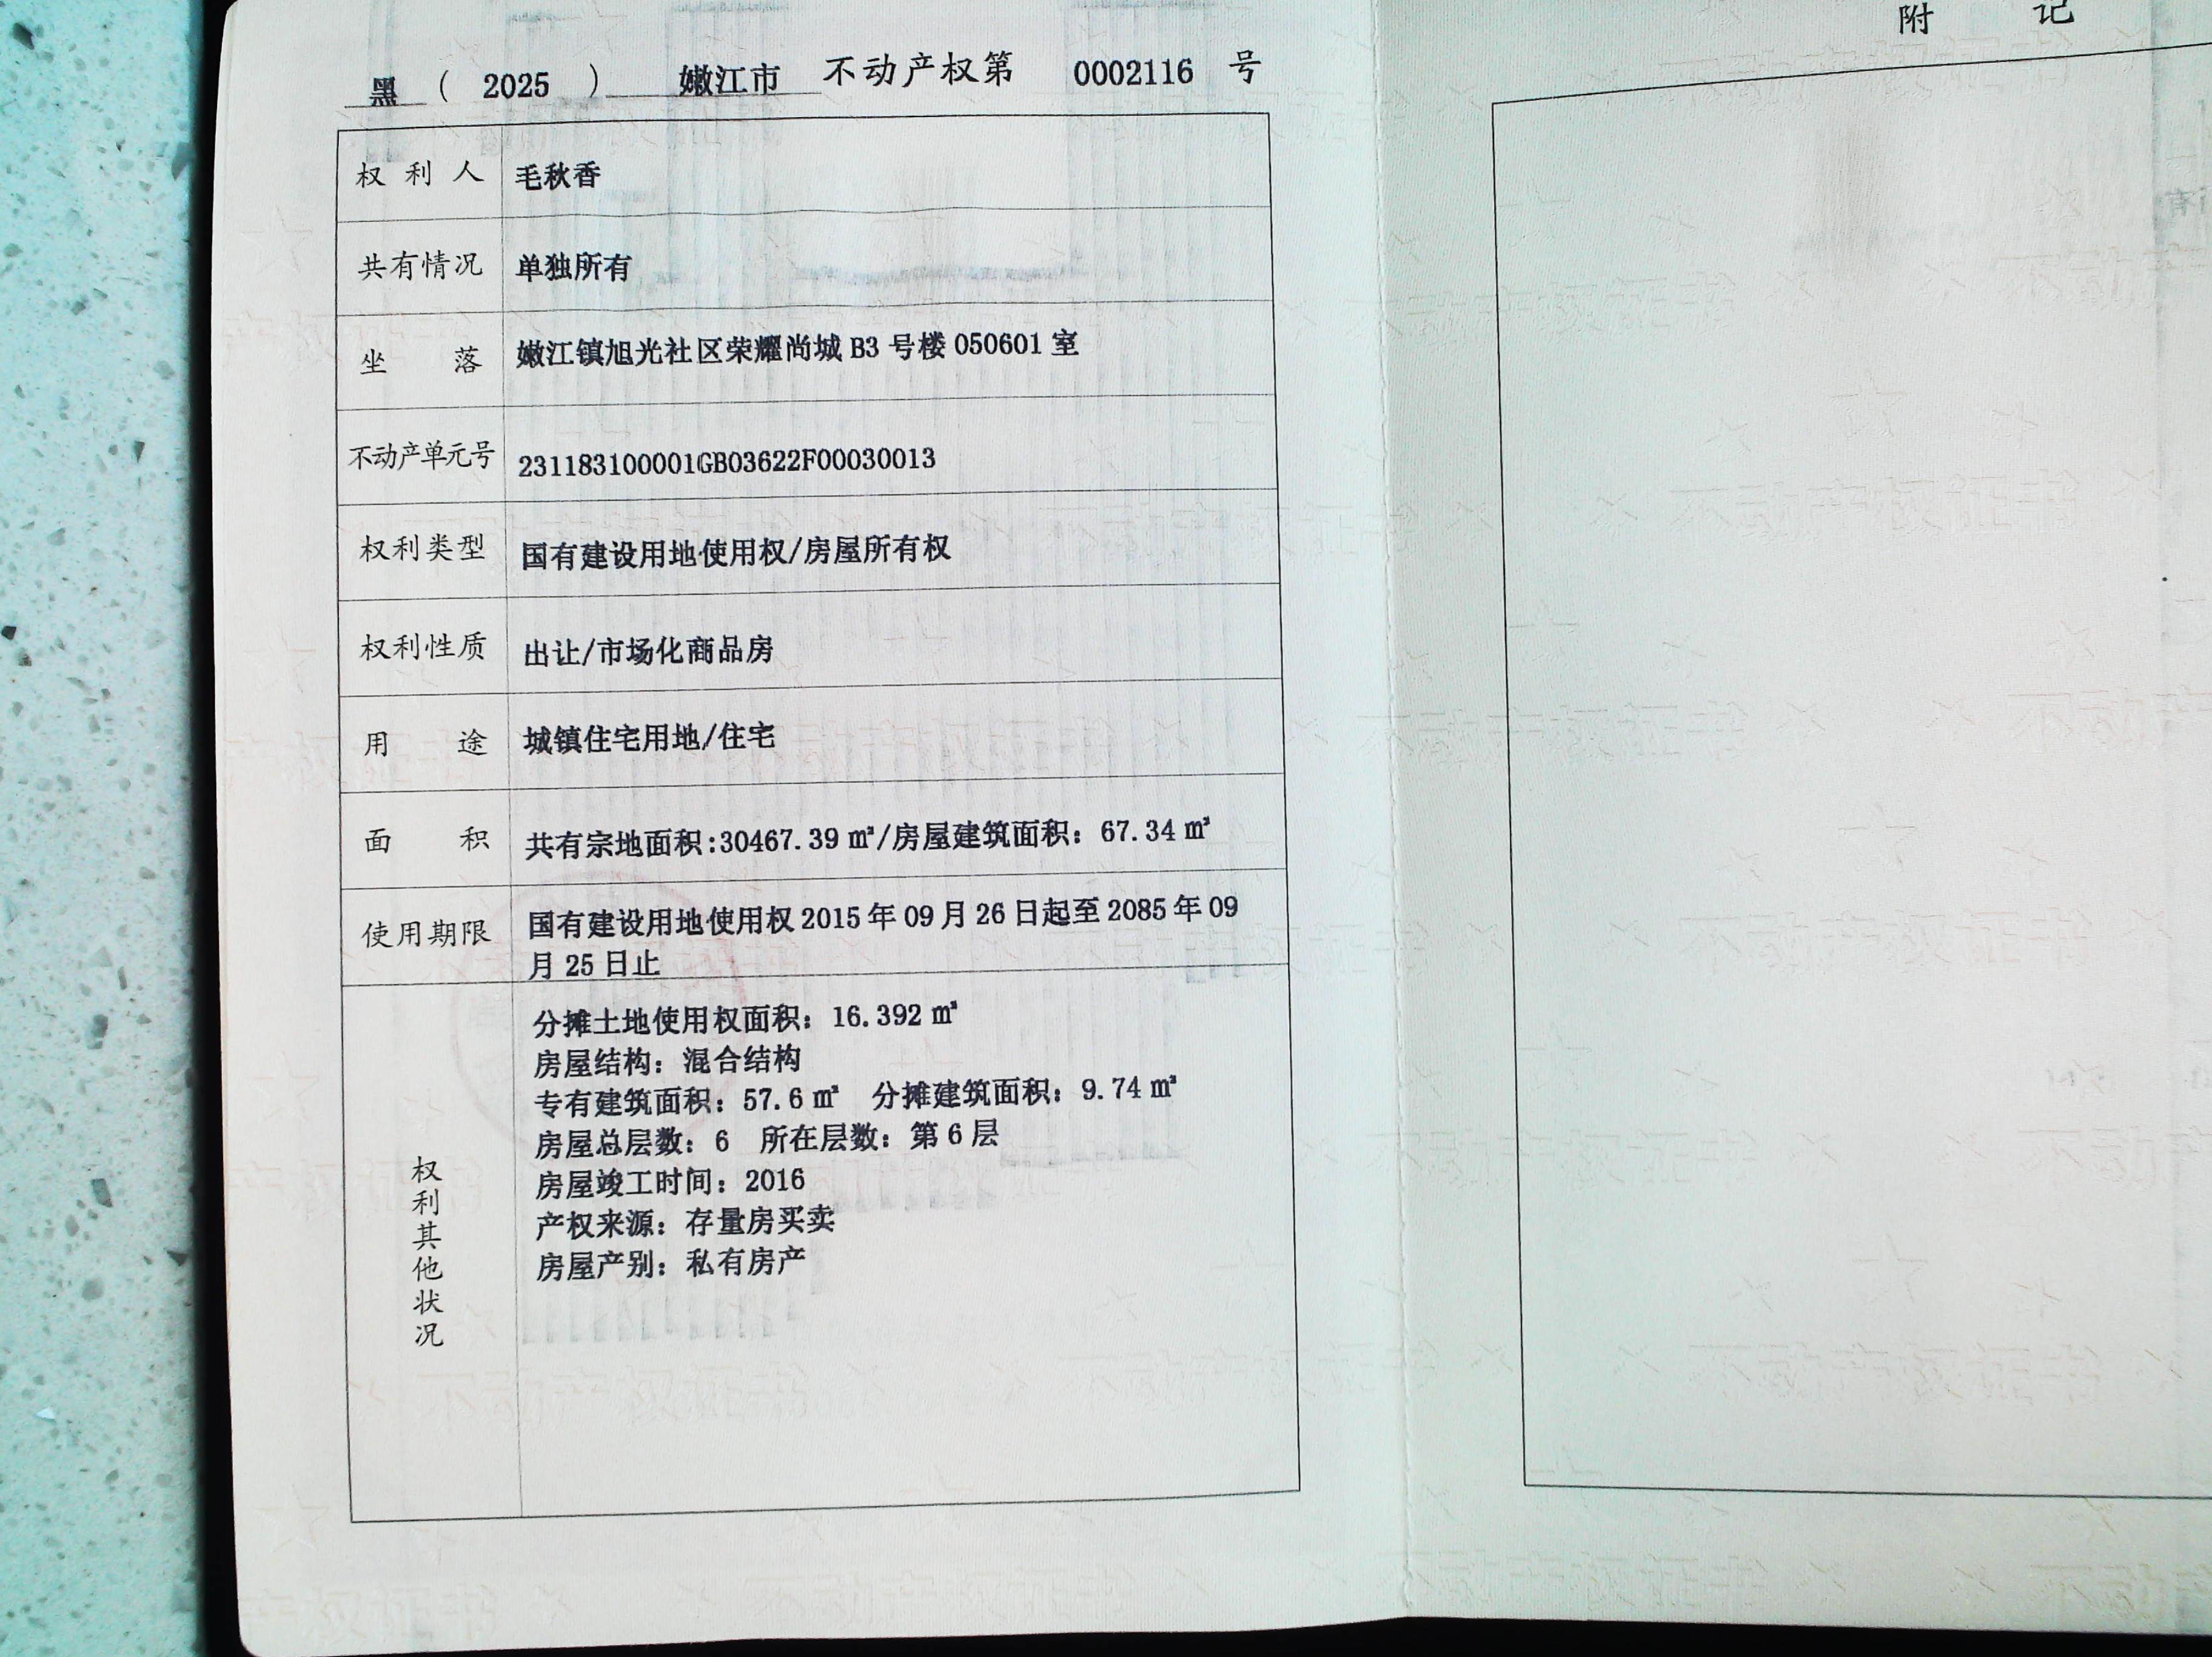 黑（2025）嫩江市不动产权第0002116号
权利人 毛秋香
共有情况 单独所有
坐落 嫩江镇旭光社区荣耀尚城B3号楼050601室
不动产单元号 231183100001GB03622F00030013
权利类型 国有建设用地使用权/房屋所有权
权利性质 出让/市场化商品房
用途 城镇住宅用地/住宅
面积 共有宗地面积:30467.39㎡/房屋建筑面积：67.34㎡
使用期限 国有建设用地使用权2015年09月26日起至2085年09
月25日止
权利其他状况
分摊土地使用权面积：16.392㎡
房屋结构：混合结构
专有建筑面积：57.6㎡ 分摊建筑面积：9.74㎡
房屋总层数：6 所在层数：第6层
房屋竣工时间：2016
产权来源：存量房买卖
房屋产别：私有房产
附记